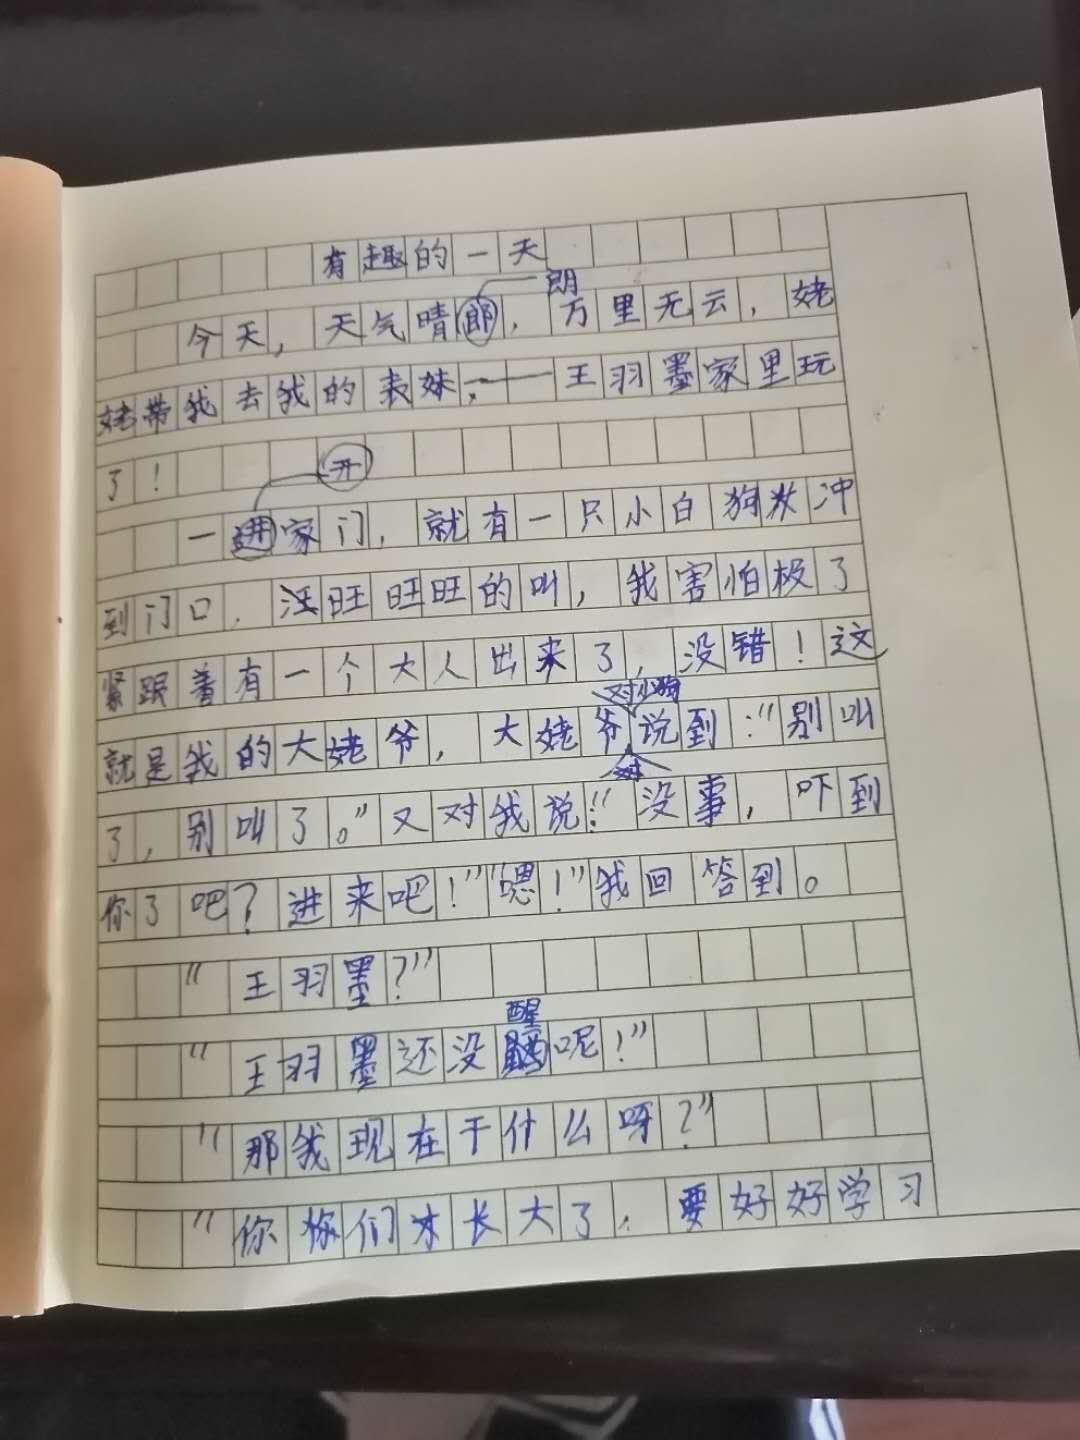 有趣的一天
朗
今天，天气晴郎，万里无云，姥
姥带我去我的表妹，——王羽墨家里玩
了！
开
一进家门，就有一只小白狗冲
到门口，汪旺旺旺的叫，我害怕极了
紧跟着有一个大人出来了，没错！这
对小狗
就是我的大姥爷，大姥爷说到："别叫
对
了，别叫了。"又对我说："没事，吓到
你了吧？进来吧！""嗯！"我回答到。
"王羽墨？"
醒
"王羽墨还没呢！"
"那我现在干什么呀？"
"你你们长大了，要好好学习